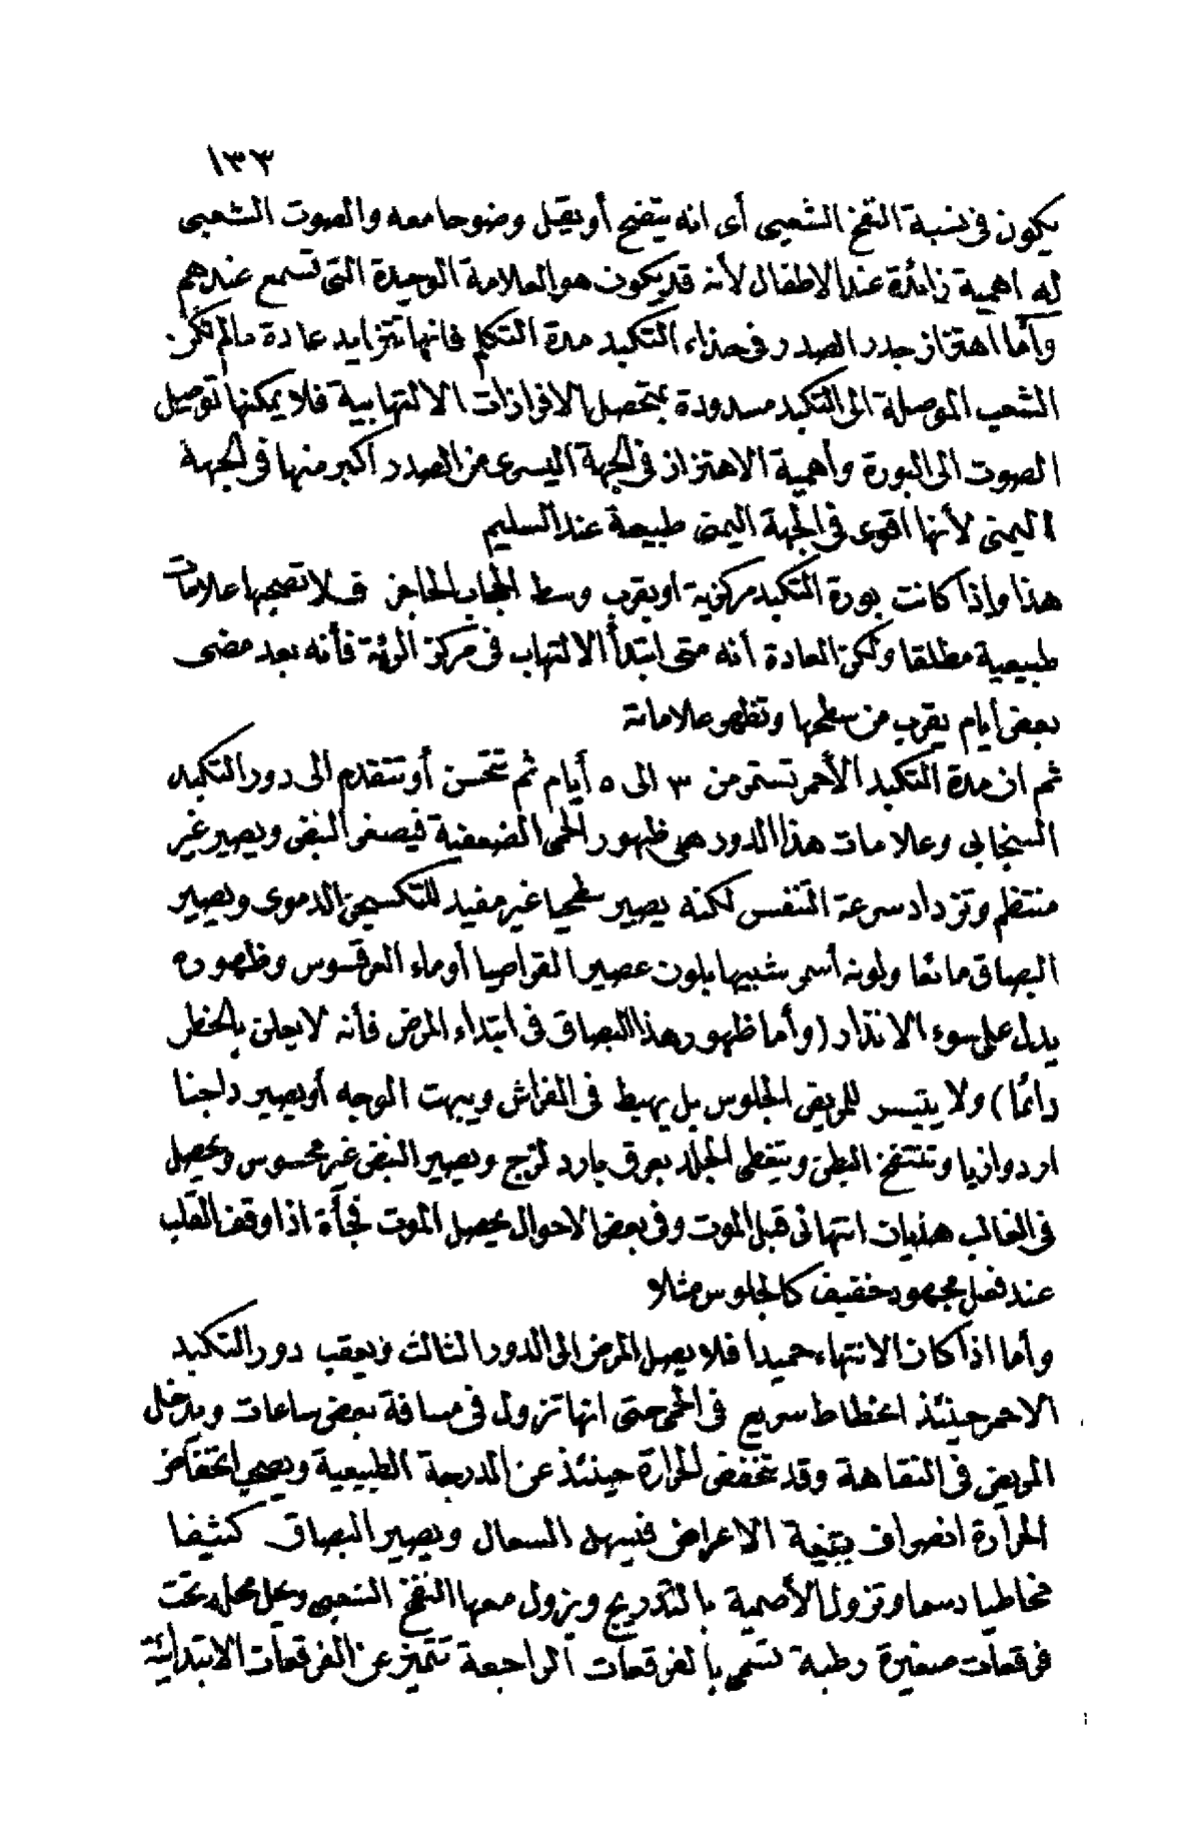 ١٣٣
يكون في نسبة النفخ الشعبي أى انه يتضح أو يقل وضوحا معه والصوت الشعبى
له اهمية زائدة عند الاطفال لأنه قد يكون هو العلامة الوحيدة التى تسمع عندهم
وأما اهتزاز جدر الصدر فى حذاء التكبد مدة التكلم فانها تتزايد عادة مالم تكن
الشعب الموصلة الى التكبد مسدودة بمتحصل الافرازات الالتهابية فلا يمكنها توصيل
الصوت الى البورة وأهمية الاهتزاز فى الجهة اليسرى من الصدر أكبر منها فى الجهة
اليمنى لأنها أقوى فى الجهة اليمنى طبيعة عند السليم
هذا وإذا كانت بورة التكبد مركزية او بقرب وسط الحجاب الحاجز فلا تصحبها علامات
طبيعية مطلقا ولكن العادة أنه متى ابتدأ الالتهاب فى مركز الرئة فأنه بعد مضى
بعض أيام يقرب من سطحها وتظهر علاماته
ثم ان مدة التكبد الأحمر تستمر من ٣ الى ٥ أيام ثم تتحسن أو تتقدم الى دور التكبد
السنجابى وعلامات هذا الدور هى ظهور الحمى الضعفية فيصغر النبض ويصير غير
منتظم وتزداد سرعة التنفس لكنه يصير سطحيا غير مفيد للتكسيجن الدموى ويصير
البصاق مائعا ولونه أسمر شبيها بلون عصير القراصيا أو ماء العرقسوس وظهوره
يدل على سوء الانذار (وأما ظهور هذا البصاق فى ابتداء المرض فأنه لا يعلن بالخطر
دائما) ولا يتيسر للمريض الجلوس بل يهبط فى الفراش ويبهت الوجه أو يصير داجنا
اردوازيا وتنتفخ البطن ويتغطى الجلد بعرق بارد لزج ويصير النبض غير محسوس ويحصل
فى الغالب هذيان انتهائى قبل الموت وفى بعض الاحوال يحصل الموت فجأة اذا وقف القلب
عند فعل مجهود خفيف كالجلوس مثلا
وأما اذا كان الانتهاء حميدا فلا يصل المرض الى الدور الثالث ويعقب دور التكبد
الاحمر حينئذ انحطاط سريع فى الحمى حتى انها تزول فى مسافة بعض ساعات ويدخل
المريض فى النقاهة وقد تنخفض الحرارة حينئذ عن الدرجة الطبيعية ويصحب انخفاض
الحرارة انصراف بقية الاعراض فيسهل السعال ويصير البصاق كثيفا
مخاطيا دسما وتزول الأصمية بالتدريج ويزول معها النفخ الشعبى ويحل محله تحت
فرقعات صغيرة رطبة تسمى بالفرقعات الراجعة تتميز عن الفرقعات الابتدائية